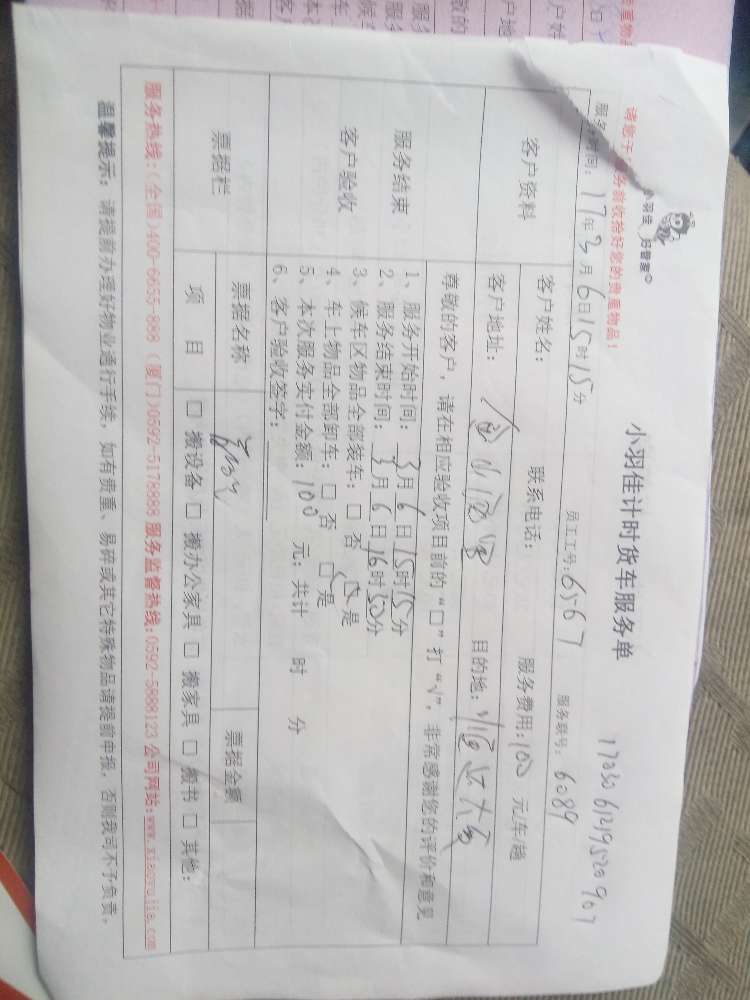 小羽佳 好管家
请您于 务前收拾好您的贵重物品！
小羽佳计时货车服务单
服务时间：17年3月6日15时15分 员工工号：6567 服务联号：6089
客户资料
客户姓名： 联系电话： 服务费用：100 元/车/趟
客户地址： 目的地：
尊敬的客户，请在相应验收项目前的“□”打“√”，非常感谢您的评价和意见
服务结束
客户验收
1、服务开始时间：3月6日15时15分
2、服务结束时间：3月6日16时50分
3、候车区物品全部装车：□ 否 □ 是
4、车上物品全部卸车：□ 否 □ 是
5、本次服务实付金额：100 元；共计 时 分
6、客户验收签字：
票据栏
票据名称 票据金额
项 目 □ 搬设备 □ 搬办公家具 □ 搬家具 □ 搬书 □ 其他：
服务热线：(全国)400-6655-888 (厦门)0592-5178888 服务监督热线：0592-5888123 公司网站：www.xiaoyujia.com
温馨提示：请提前办理好物业通行手续，如有贵重、易碎或其它特殊物品请提前申报，否则我司不予负责。